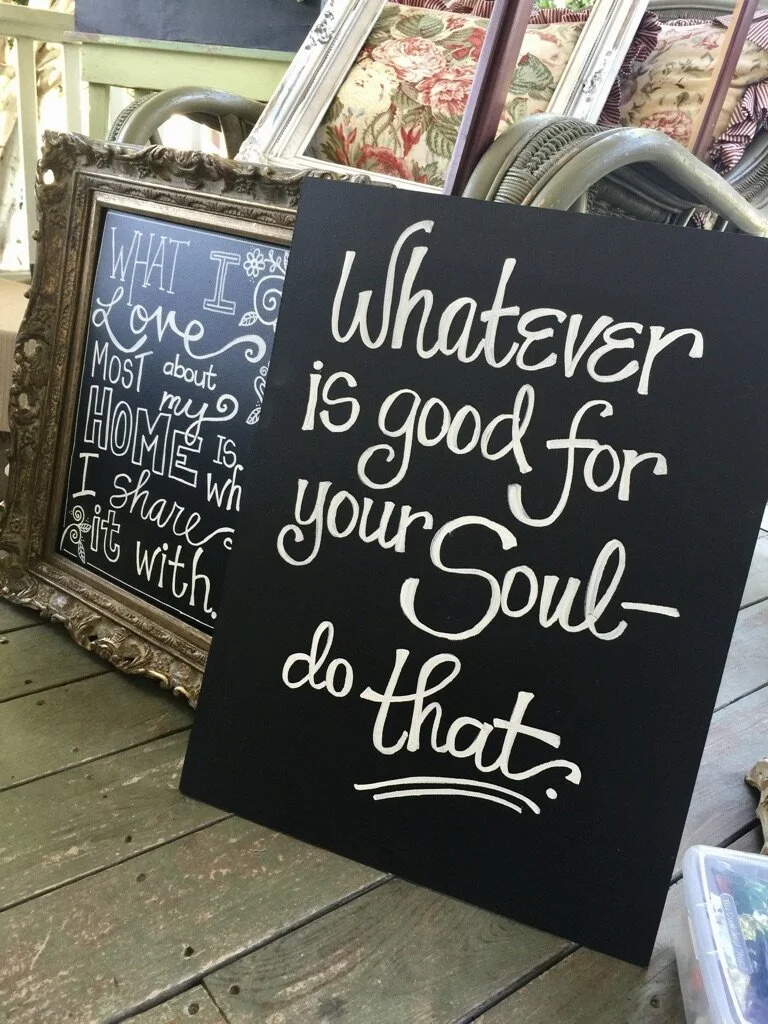 WHAT I
Love
MOST about
my
HOME IS
I share
it with.
Whatever
is good for
your Soul–
do that.